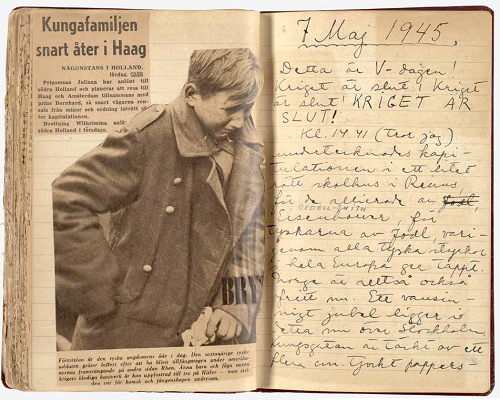 Kungafamiljen
snart åter i Haag
NÅGONSTANS I HOLLAND,
lördag.
Prinsessan Juliana har anlänt till
södra Holland och planerar att resa till
Haag och Amsterdam tillsammans med
prins Bernhard, så snart vägarna ren-
sats från minor och ordning inträtt
ter kapitulationen.
Drottning Wilhelmina anlände till
södra Holland i torsdags.
BRY
Förtvivlan är den tyska ungdomens öde i dag. Den sextonårige tyske
soldaten gråter bittert efter att ha blivit tillfångatagen under amerika-
nernas framryckning på andra sidan Rhen. Ännu bara och föga mion
krigets blodiga hantverk är han uppfostrad till tro på Hitler — men
den var för hemsk och fångenskapen
7 Maj 1945.
Detta är V-dagen!
Kriget är slut! Kriget
är slut! KRIGET ÄR
SLUT!
Kl. 14.41 (tror jag)
undertecknades kapi-
tulationen i ett litet
rött skolhus i Reims
för de allierade av Jodl
BEDELL-SMITH
Eisenhower, för
tyskarna av Jodl, vari-
genom alla tyska styrkor
i hela Europa ge tappt.
Norge är alltså också
fritt nu. Ett vansin-
nigt jubel ligger i
detta nu över Stockholm.
Kungsgatan är täckt av ett
flera cm. tjockt pappers-